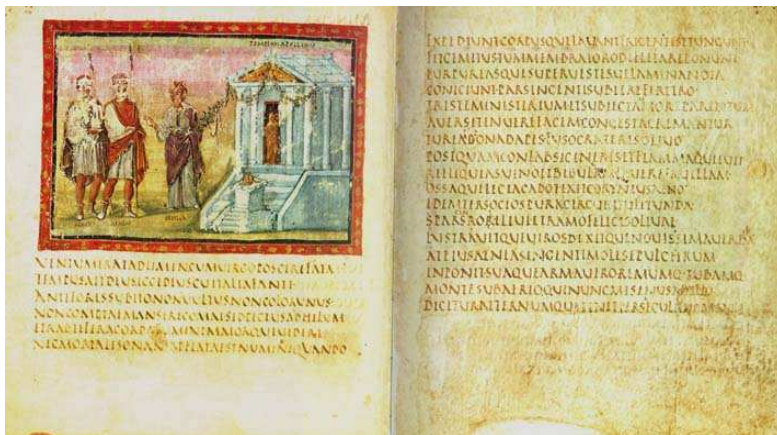 TEMPLUM APOLLINIS
SIBYLLA
VENTUMERATADLIMENCUMVIRGOPOSCEREFATA
TEMPUSAITDEUSECCEDEUSCUITALIAFANTI
ANTEFORESSUBITONONVULTUSNONCOLORUNUS
NONCOMTAEMANSERECOMAESEDPECTUSANHELUM
ETRABIEFERACORDATUMENTMAIORQUEVIDERI
NECMORTALESONANSADFLATAESTNUMINEQUANDO
EXPEDIUNTCORPUSQLAVANTFRIGENTISETUNGUNT
FITGEMITUSTUMMEMBRATORODEFLETAREPONUNT
PURPUREASQUESUPERVESTESVELAMINANOTA
CONICIUNTPARSINGENTISUBIEREFERETRO
TRISTEMINISTERIUMETSUBIECTAMMOREPARENTUM
AVERSITENUEREFACEMCONGESTACREMANTUR
TUREADONADAPESFUSOCRATERESOLIVO
POSTQUAMCONLAPSICINERESETFLAMMAQUIEVIT
RELIQUIASVINOETBIBULAMLAVEREFAVILLAM
OSSAQUELECTACADOTEXITCORYNEUSAENO
IDEMTERSOCIOSPURACIRCUMTULITUNDA
SPARGENSRORELEVIETRAMOFELICISOLIVAE
LUSTRAVITQUEVIROSDIXITQUENOVISSIMAVERBA
ATPIUSAENEASINGENTIMOLESEPULCHRUM
INPONITSUAQUEARMAVIROREMUMQTUBAMQ
MONTESUBAERIOQUINUNCMISENUSABILLO
DICITURAETERNUMQUETENETPERSAECULANOMEN